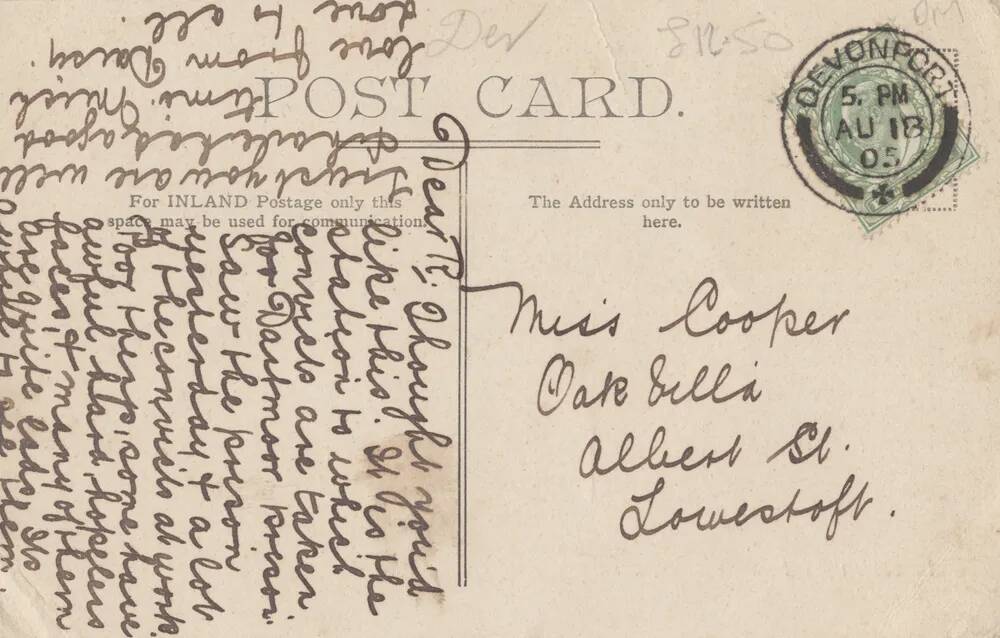 POST CARD.
For INLAND Postage only this
space may be used for communication.
The Address only to be written
here.
DEVONPORT
5. PM
AU 18
05
Dev
£12.50
Dear R. Thought you'd
like this. It is the
station to which
convicts are taken
for Dartmoor prison.
Saw the prison
yesterday & a lot
of the convicts at work.
Poor some have
awful hard, hopeless
faces, & many of them
are quite lads. Its
to see them.
Trust you are well
& had a good
time. Much
love from Daisy.
Love to all.
Miss Cooper
Oak Villa
Albert St.
Lowestoft.